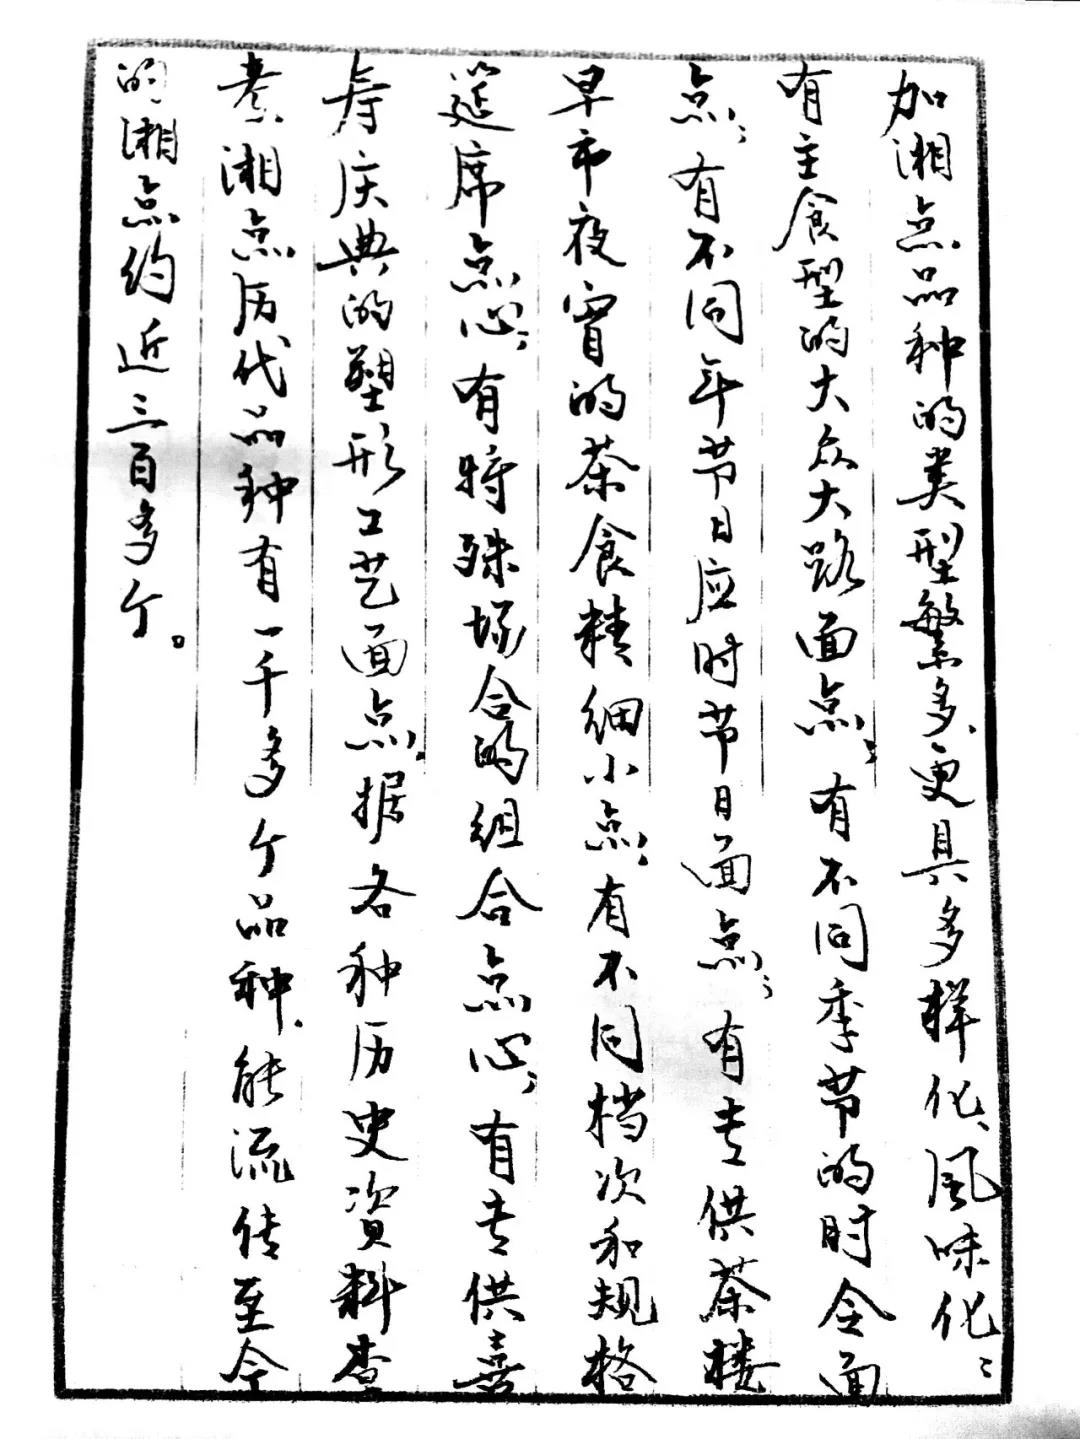 加湘点品种的类型繁多、更具多样化、风味化；
有主食型的大众大路面点；有不同季节的时令面
点；有不同年节日应时节日面点；有专供茶楼
早市夜宵的茶食精细小点；有不同档次和规格
筵席点心；有特殊场合的组合点心；有专供喜
寿庆典的塑形工艺面点。据各种历史资料查
考湘点历代品种有一千多个品种、能流传至今
的湘点约近三百多个。